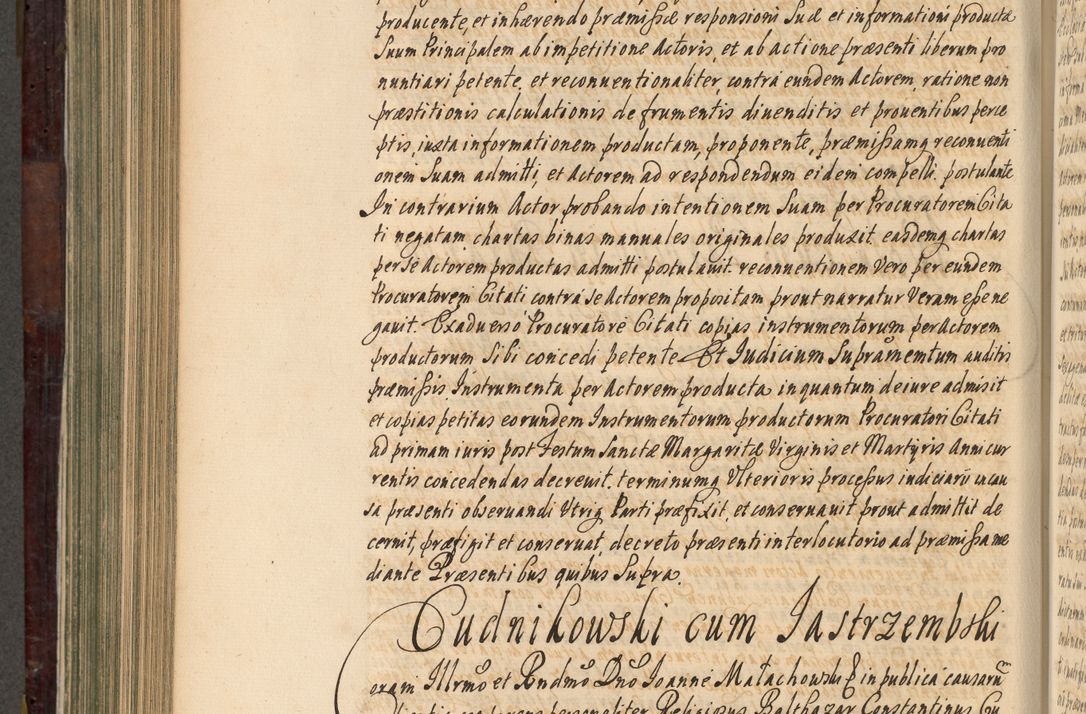 producente, et inhærendo præmissæ responsioni Suæ et informationi productæ
Suum Principalem ab impetitione Actoris, et ab actione præsenti liberum pro
nuntiari petente, et reconuentionaliter, contra eundem Actorem, ratione non
præstitionis calculationis de frumentis diuenditis et prouentibus perce
ptis, iuxta informationem productam, proponente, præmissamq reconuenti
onem Suam admitti, et Actorem ad respondendum eidem compelli. postulante
In contrarium Actor probando intentionem Suam per Procuratorem Cita
ti negatam chartas binas manuales originales produxit. easdemq chartas
per Se Actorem productas admitti postulauit. reconuentionem Vero per eundem
Procuratorem Citati contra se Actorem propositam prout narratur Veram esse ne
gauit. Exaduerso Procuratore Citati copias instrumentorum per Actorem
productorum Sibi concedi petente. Et Iudicium Supramemtum auditis
præmissis Instrumenta per Actorem producta in quantum de iure admisit
et copias petitas eorundem Instrumentorum productorum Procuratori Citati
ad primam iuris post Festum Sanctæ Margaritæ Virginis et Martyris Anni cur
rentis concedendas decreuit. terminumq Vlterioris processus iudiciarii in cau
sa præsenti obseruandi Vtriq Parti præfixit, et conseruauit prout admittit de
cernit, præfigit et conseruat, decreto præsenti interlocutorio ad præmissa me
diante Præsentibus quibus Supra.
Cudnikowski cum Jastrzembski
oram Illrmo et Rndmo Dno Joanne Małachowski E in publica causarum
personaliter Religiosus Balthazar Constantinus Cu